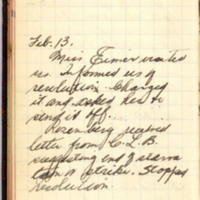 Feb. 13.
Miss Eimer visited
us. Informed us of
resolution. Changed
it and asked her to
send it off.
Rosenberg received
letter from C.L.B.
suggesting end of
cam strike. Stopped
resolution.